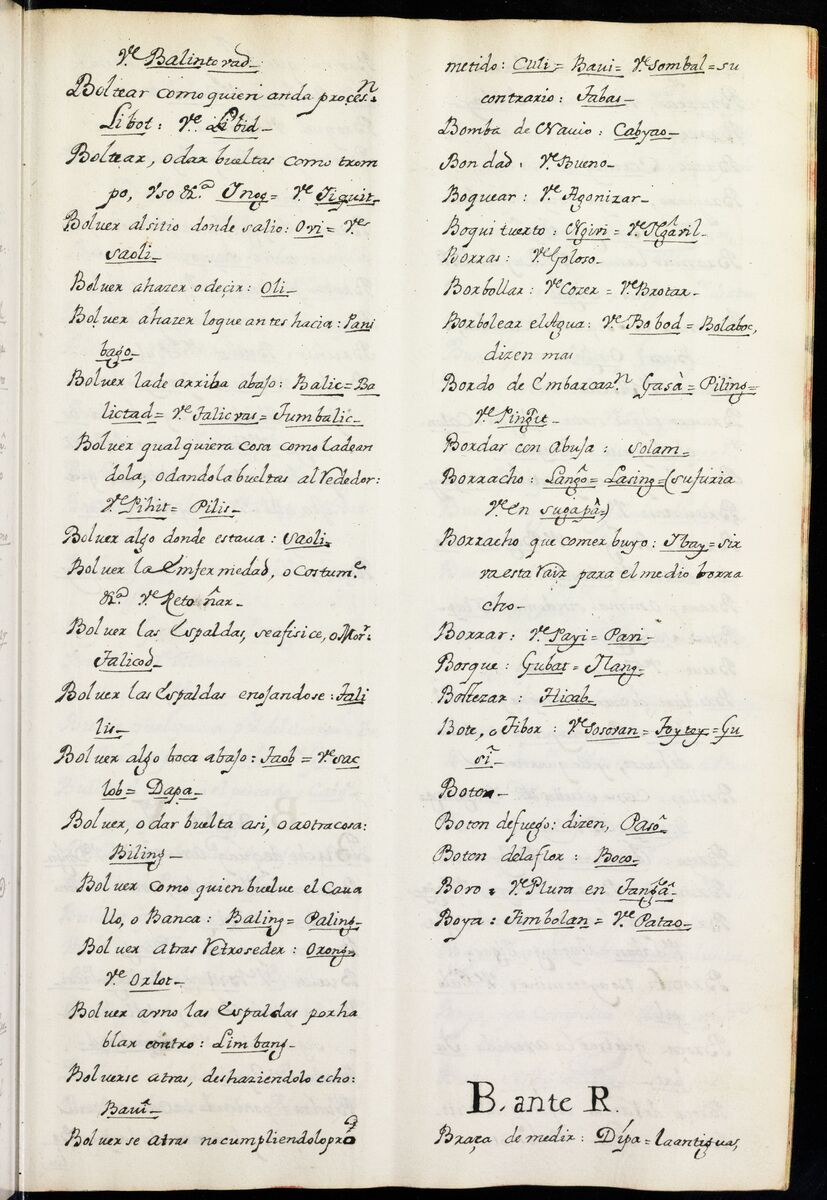 V.e Balintovad_
Boltear como quien anda proces.n
Libot: V.e Libid_
Boltear, o dar bueltas como trom
po, Vso &.a Inog = V.e Tiguit_
Boluer al sitio donde salio: Ovi = V.e
saoli_
Boluer ahazer o deçir: Oli_
Boluer ahazer loque antes hacia: Pani
bago_
Boluer lade arriba abaso: Balic = Ba
lictad = V.e Talicvas = Tumbalic_
Boluer qualquiera cosa como ladean
dola, o dandola bueltas al Vededor:
V.e Pihit = Pilis_
Boluer algo donde estaua: Saoli_
Boluer la Emfermedad, o Costum.e
&.a V.e Retoñar_
Boluer las Espaldas, seafisice, o Mor.r
Talicod_
Boluer las Espaldas enosandose: Tali
lis_
Boluer algo boca abaso: Taob = V.e sac
lob = Dapa_
Boluer, o dar buelta asi, o aotra cosa:
Biling_
Boluer como quien buelue el Caua
llo, o Banca: Baling = Paling_
Boluer atras Vetroseder: Orong_
V.e Orlot_
Boluer arno las Espaldas por ha
blar contro: Limbang_
Boluerse atras, deshaziendolo echo:
Bauî_
Boluerse atras no cumpliendolo pro
metido: Culi = Baui = V.e Sombal = su
contrario: Tabas_
Bomba de Nauio: Cabyao_
Bondad: V.e Bueno_
Boquear: V.e Agonizar_
Boqui tuerto: Ngivi = V.e Ng̃avil_
Borras: V.e Goloso_
Borbollar: V.e Cozer = V.e Brotar_
Borbolear el Agua: V.e Bobod = Bolaboc,
dizen mas
Bordo de Embarcaz.n Gasâ = Piling =
V.e Ping̃it_
Bordar con Abusa: Solam_
Borracho: Lang̃o = Lasing = (su furia
V.e en sugapâ =)
Borracho que comer buyo: Ibay = sir
va esta Vaiz para el medio borra
cho_
Borrar: V.e Payi = Pavi_
Bosque: Gubat = Ilang_
Boztezar: Hicab_
Bote, o Tibor: V.e Sosoran = Toytoy = Gu
sî_
Boton_
Boton de fuego: dizen, Pasô_
Boton dela flor: Boco_
Boro: V.e Plura en Tang̃â_
Boya: Timbolan = V.e Patao_
B. ante R.
Braça de medir: Dípa = la antiguas,